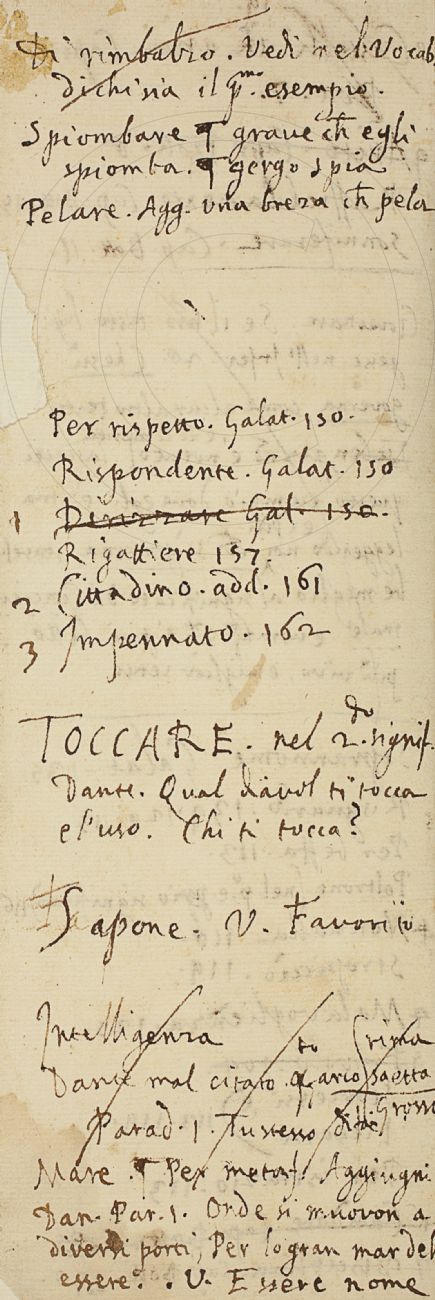 Di rimbalzo. Vedi nel Vocab.
dichisia il p.mo esempio.
Spiombare ¶ grave ch̄ egli
spiomba. ¶ gergo spia
Pelare. Agg. una breza ch̄ pela
Per rispetto. Galat. 150.
Rispondente. Galat. 150
1 Dirizzare Gal. 150.
Rigattiere 157.
2 Cittadino. add. 161
3 Impennato. 162
TOCCARE. nel 2.do signif.
Dante. Qual diavol ti tocca
e l'uso. Chi ti tocca?
Sapone. V. Favorito
Intelligenza
Dante mal citato. arco saetta
Parad. 1.
Mare. ¶ Per metaf. Aggiugni
Dan. Par. 1. Onde si muovon a
diversi porti, Per lo gran mar del
essere. V. Essere nome